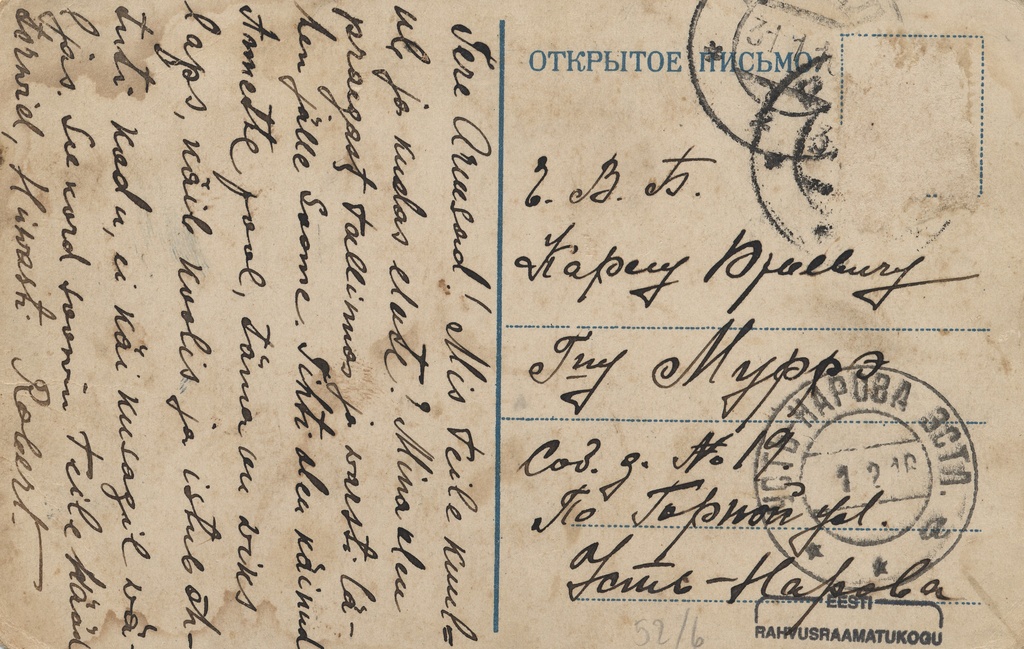 Tere Armsad! Mis Teile kuul-
ub ja kudas elate? Mina olen
praegast Tallinnas ja varsti lä-
hen jälle Soome. Tihti olen käinud
Amette pool, täma on wiks
laps, käib koolis ja istub õh-
tuti kodu, ei käi kusagil wä-
ljas. See kord soovin Teile kä
tarwid, Hüwasti. Robert.
ОТКРЫТОЕ ПИСЬМО
Е. В. Б.
Карлу Юрьевичу
Гну Муррэ
Соб. д. № 19
По Горной ул.
Усть-Нарова
31.1.1
УСТЬ НАРОВА ЭСТЛ.
1.2.16
а
EESTI
RAHVUSRAAMATUKOGU
52/6